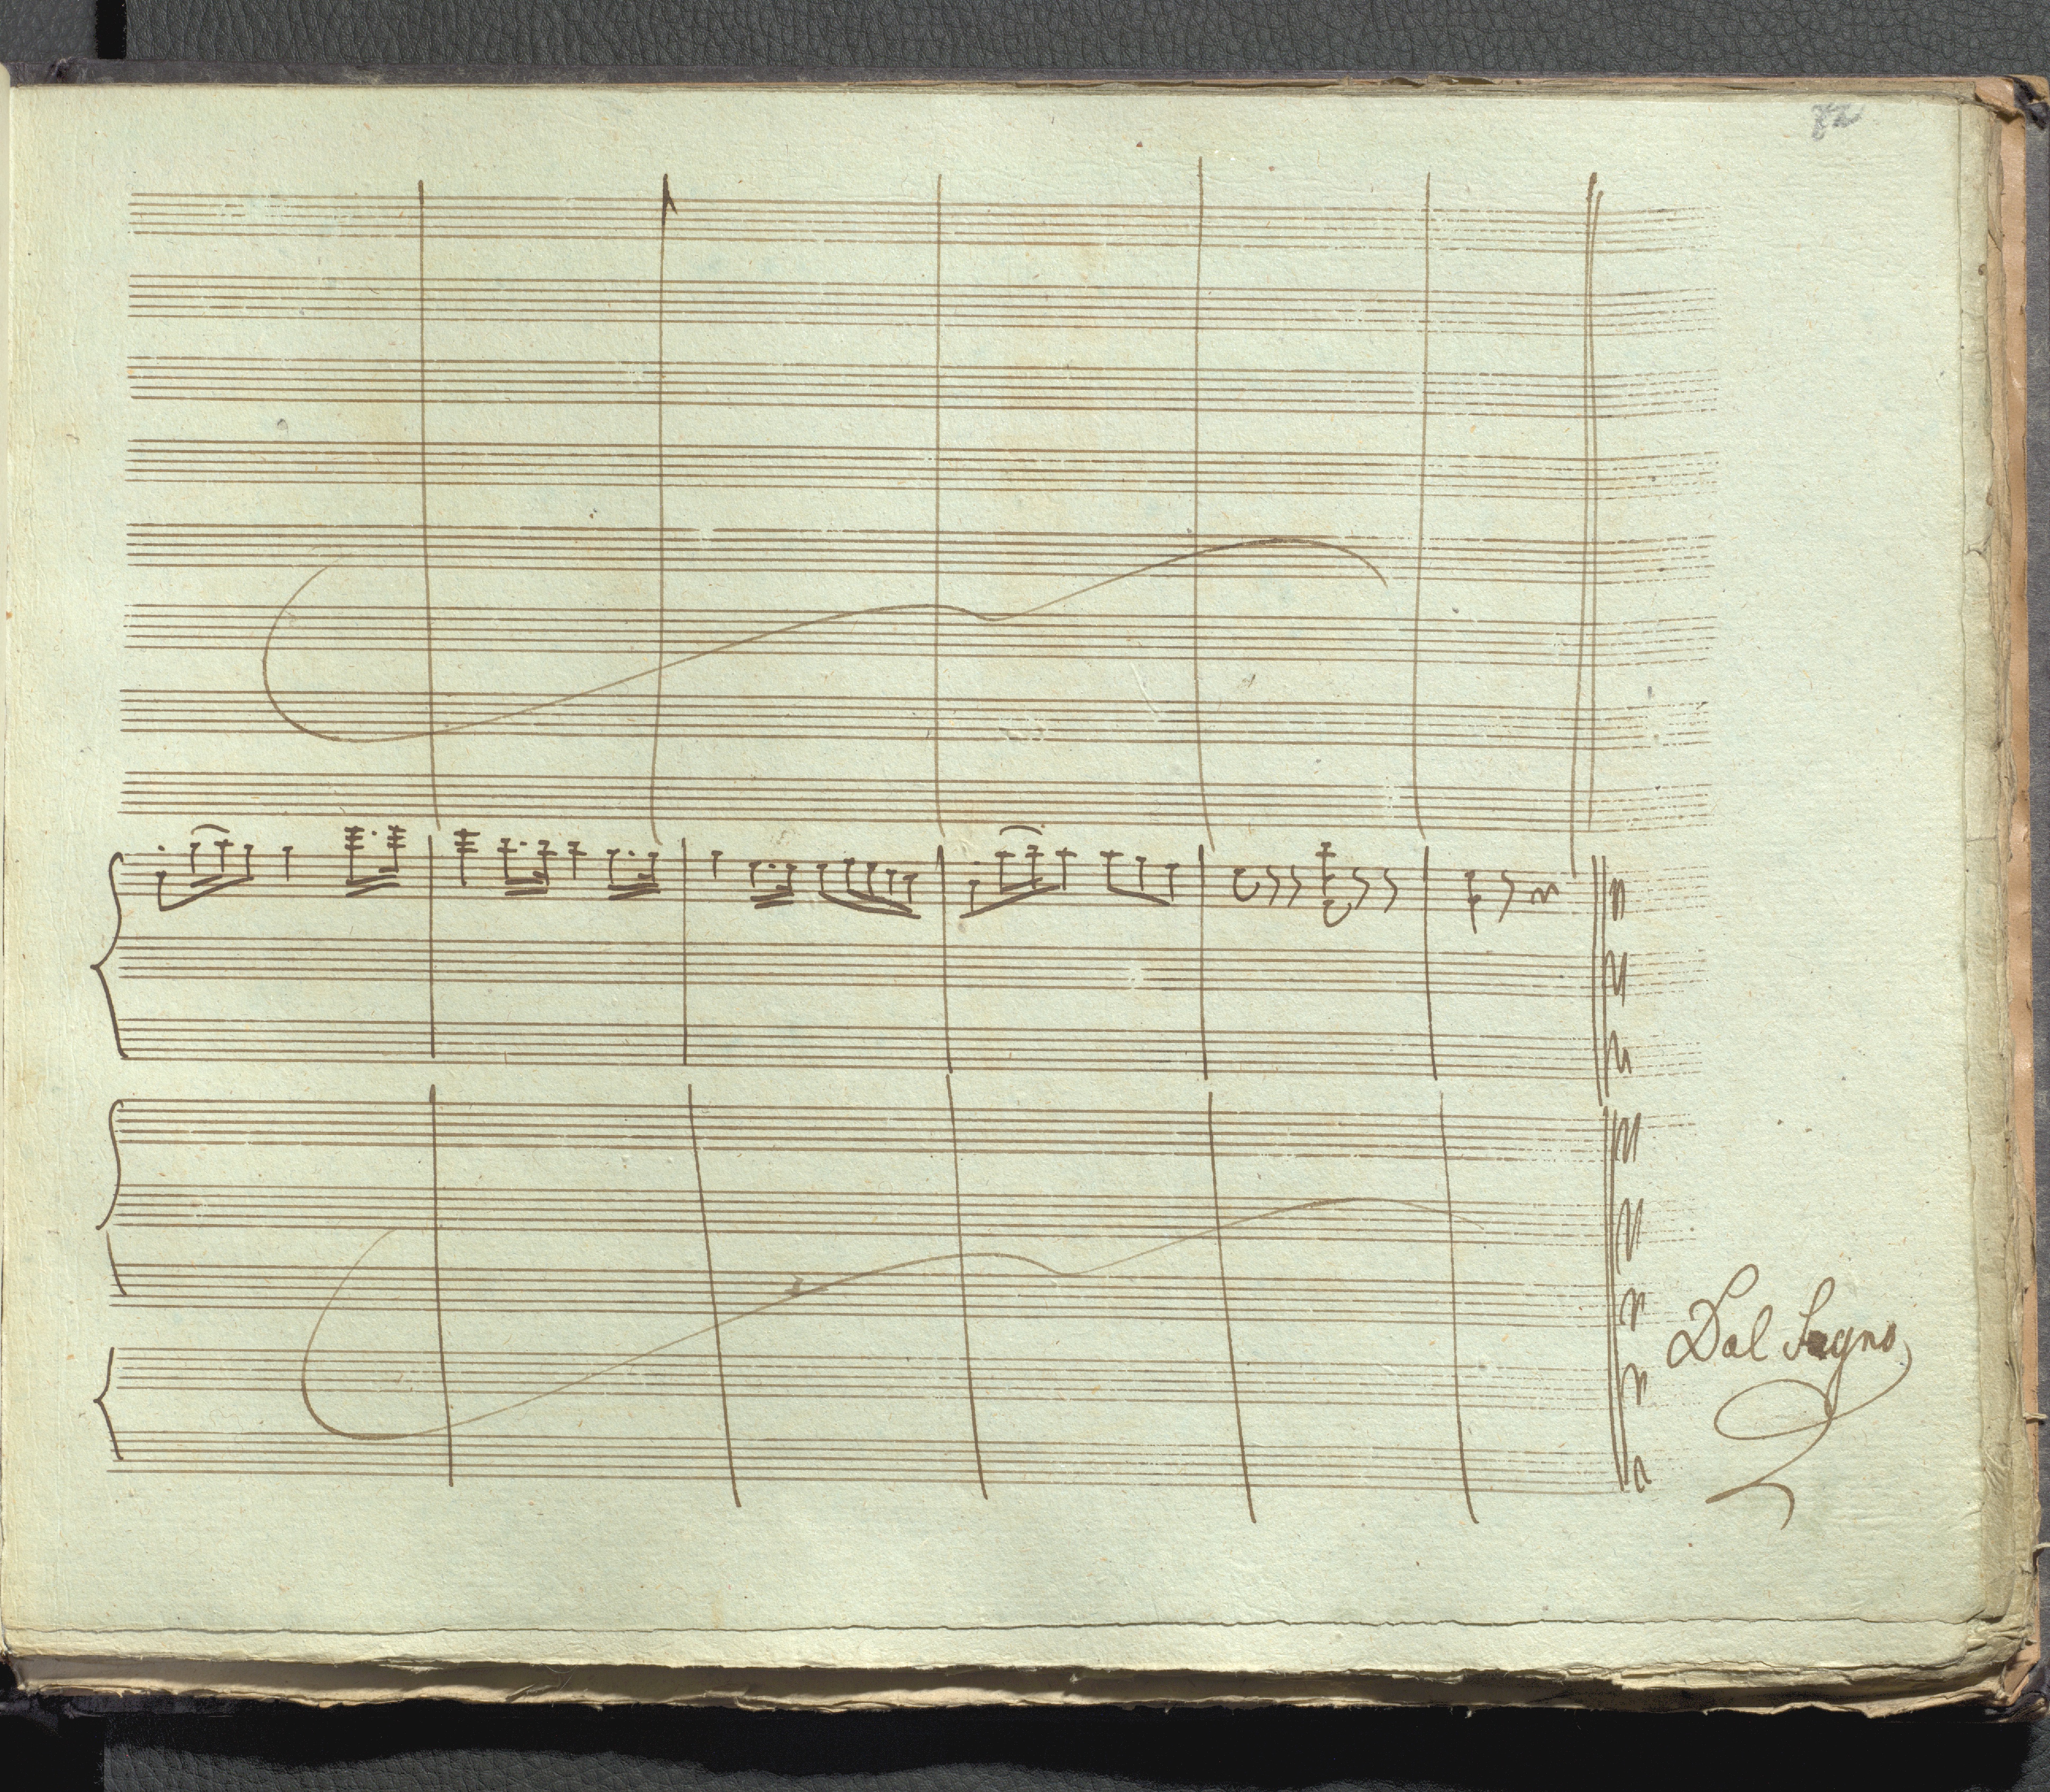 82
Dal Segno